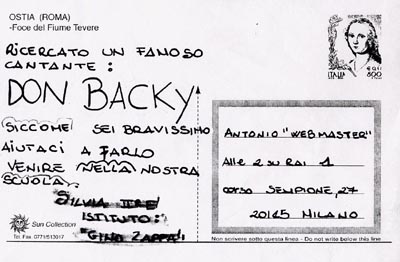 OSTIA (ROMA)
-Foce del Fiume Tevere
RICERCATO UN FAMOSO
CANTANTE:
DON BACKY
SICCOME SEI BRAVISSIMO
AIUTACI A FARLO
VENIRE NELLA NOSTRA
SCUOLA.
SILVIA
ISTITUTO:
"GINO ZAPPA"
Sun Collection
Tel. Fax 0771/513017
ITALIA 800
ANTONIO "WEBMASTER"
Alle 2 su RAI 1
CORSO SEMPIONE, 27
20145 MILANO
Non scrivere sotto questa linea - Do not write below this line